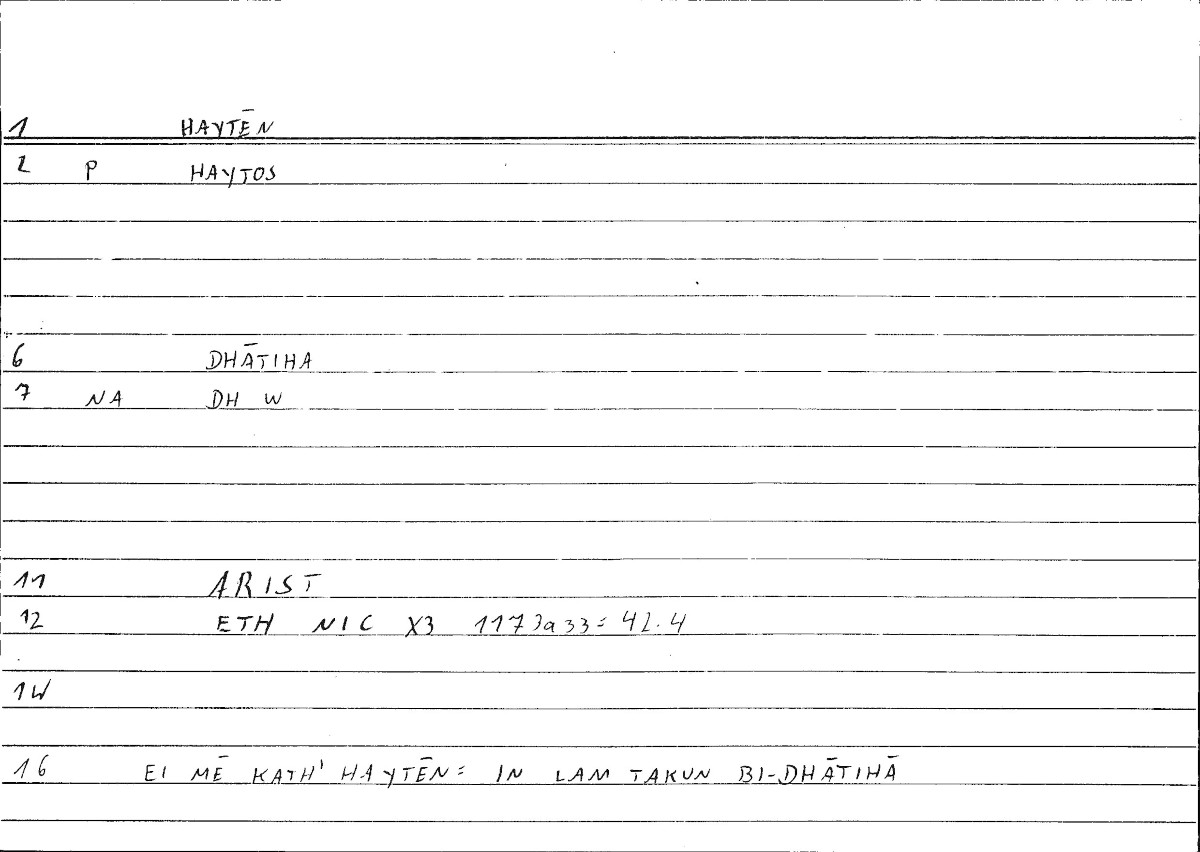 1 HAYTĒN
2 P HAYTOS
6 DHĀTIHA
7 NA DH W
11 ARIST
12 ETH NIC X3 1173a33: 42.4
1W
16 EI MĒ KATH' HAYTĒN: IN LAM TAKUN BI-DHĀTIHĀ